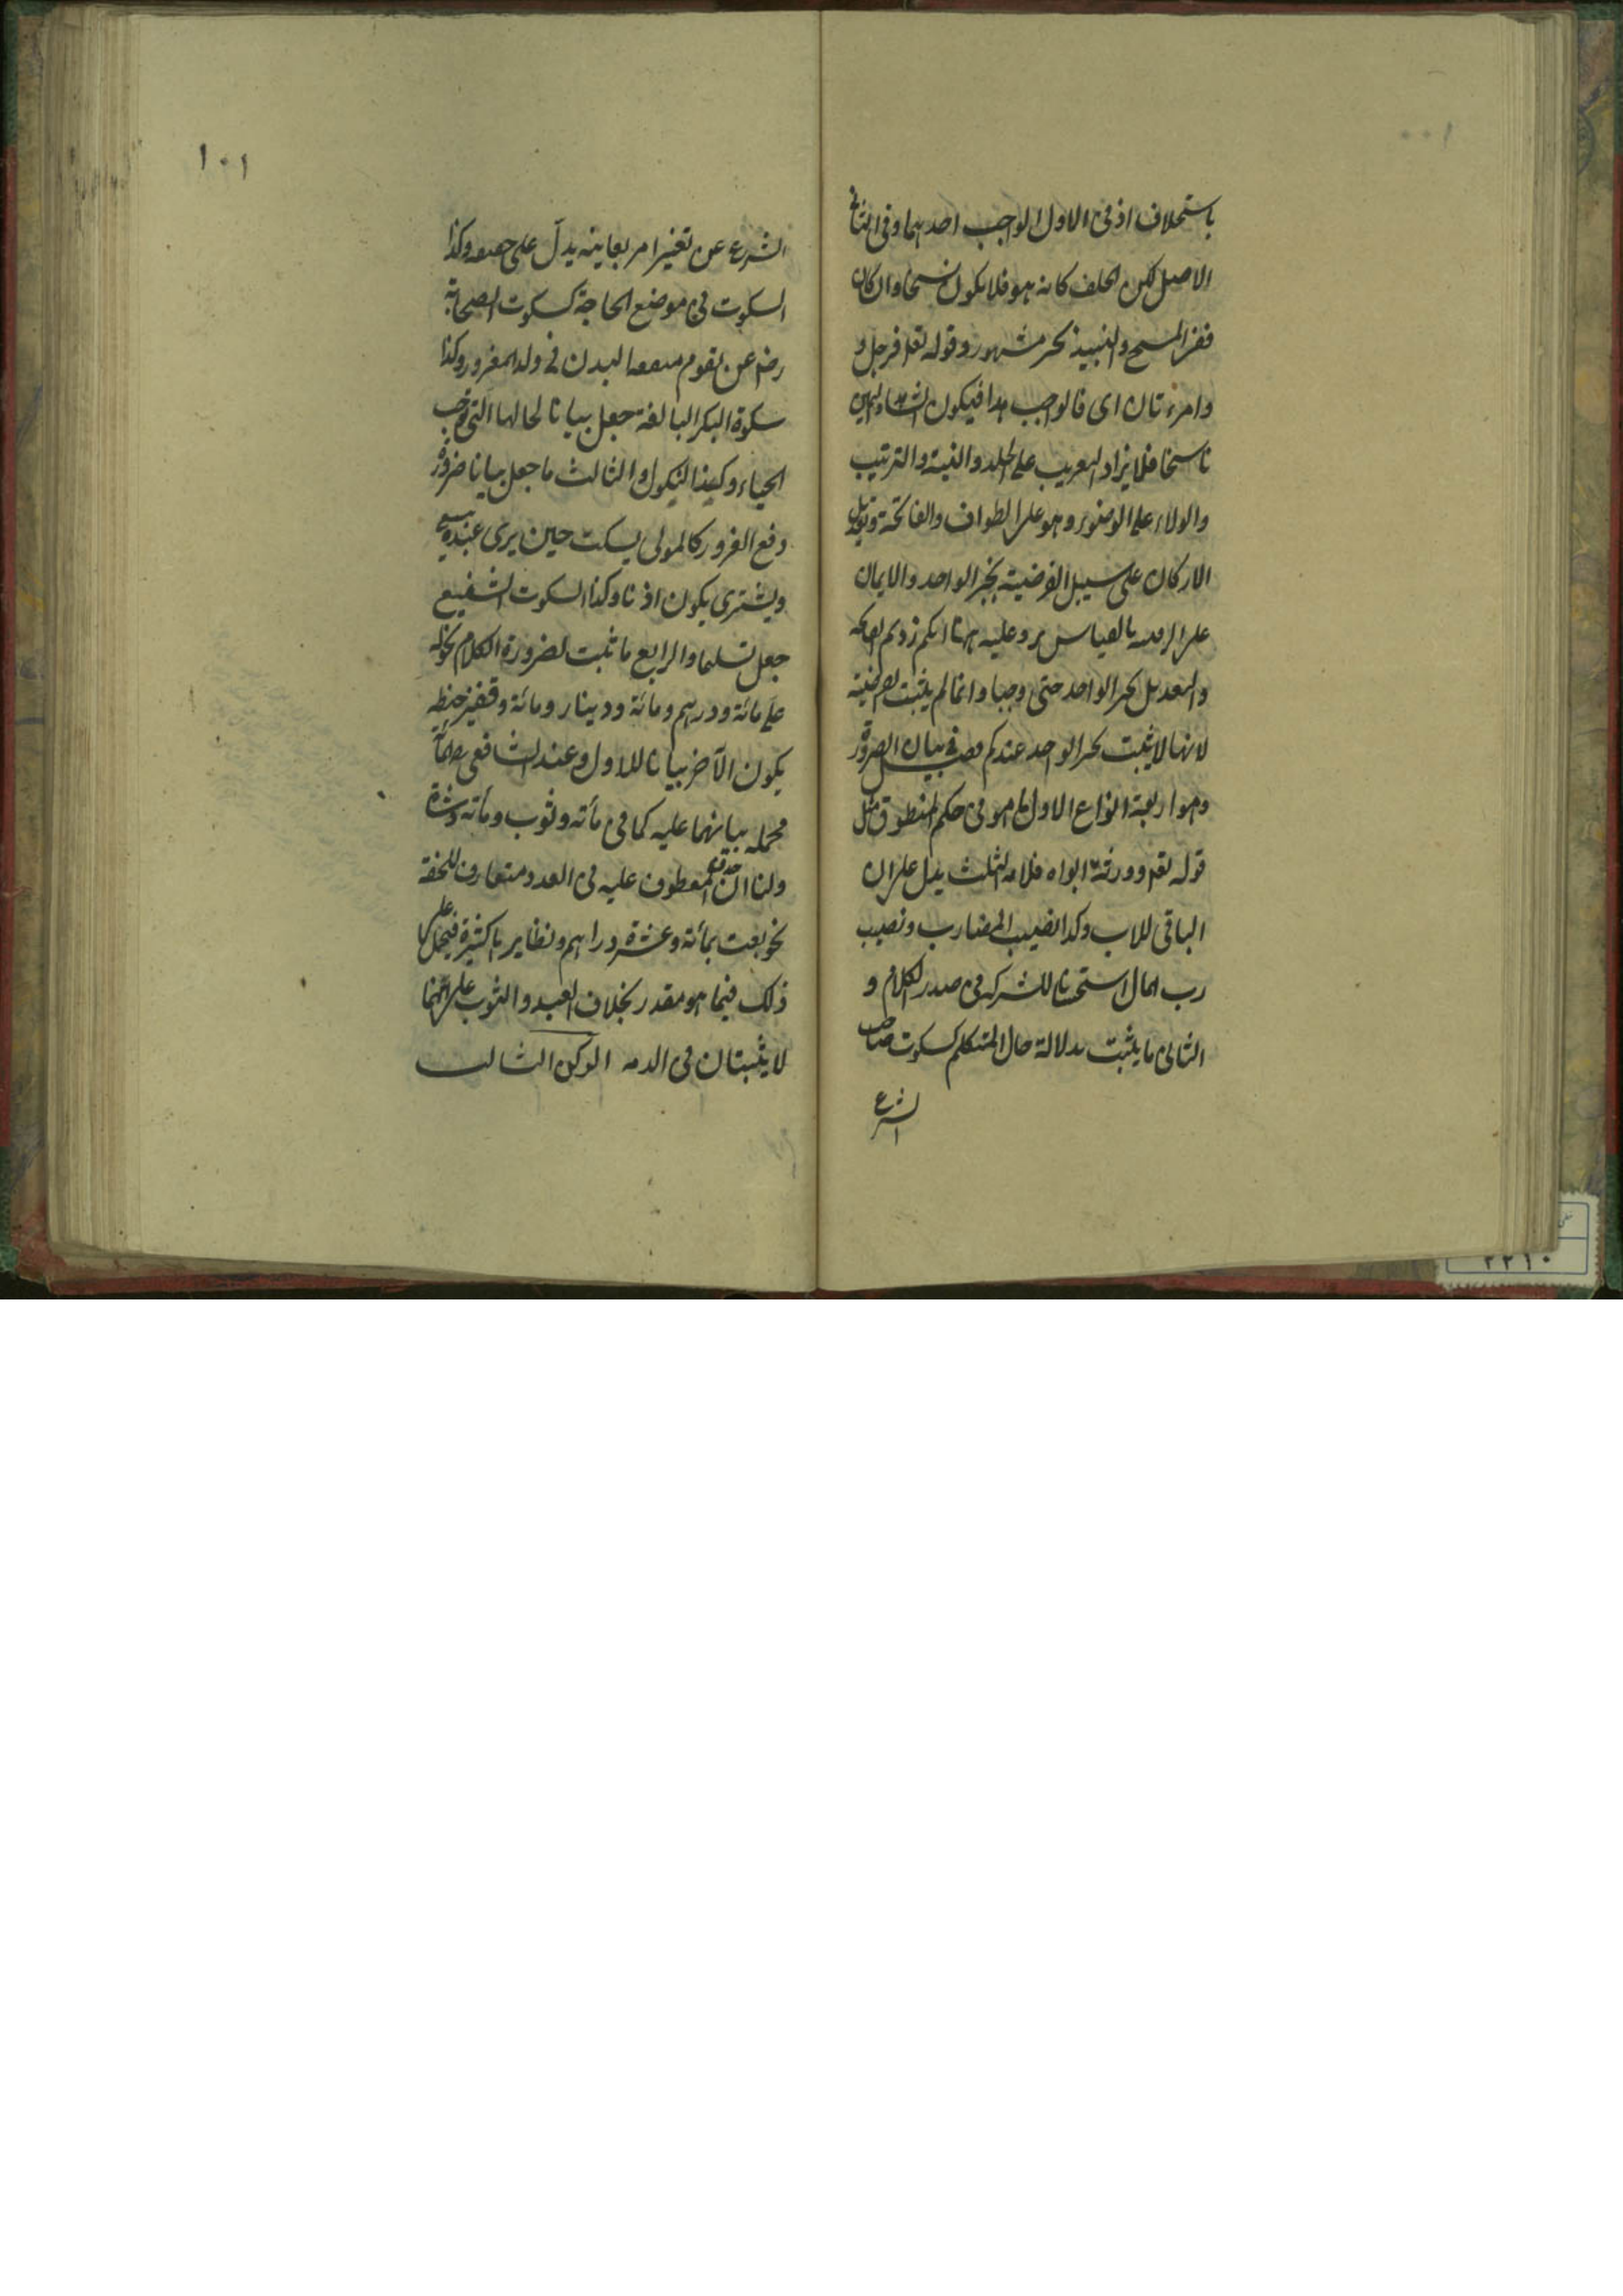 ١٠٠
باستخلاف اذ فى الاول الواجب احدهما وفى الثانى
الاصل لكن الخلف كانه هو فلا يكون نسخا وان كان
ففى المسح والنبيذ بخبر مشهور وقوله تعا فرجل و
وامرءتان اى فالواجب هذا فيكون الشاهد واليمين
ناسخا فلا يزاد التغريب على الجلد والنية والترتيب
والولاء على الوضوء وهو على الطواف والفاتحة وتعديل
الاركان على سبيل الفرضية بخبر الواحد والايمان
على الرقبة بالقياس يرد عليه ههنا انكم زدتم الفاتحة
والتعديل بخبر الواحد حتى وجبا وانما لم يثبت الفرضية
لانها لا يثبت بخبر الواحد عندكم فصل فى بيان الضرورة
وهو اربعة انواع الاول ما هو فى حكم المنطوق مثل
قوله تعا وورثه ابواه فلامه الثلث يدل على ان
الباقى للاب وكذا نصيب المضارب ونصيب
رب المال استحسانا للشركة فى صدر الكلام و
الثانى ما يثبت بدلالة حال المتكلم كسكوت صاحب
الشرع
١٠١
الشرع عن تغيير امر يعاينه يدل على حقيقته وكذا
السكوت فى موضع الحاجة كسكوت الصحابة
رض عن تقويم منفعة البدن فى ولد المغرور وكذا
سكوة البكر البالغة جعل بيانا لحالها التى توجب
الحياء وكذا النكول والثالث ما جعل بيانا ضرورة
دفع الغرور كالمولى يسكت حين يرى عبده يبيع
ويشترى يكون اذنا وكذا السكوت الشفيع
جعل تسليما والرابع ما ثبت لضرورة الكلام نحو له
على مائة ودرهم ومائة ودينار ومائة وقفيز حنطة
يكون الآخر بيانا للاول وعند الشافعى المائة
مجملة بيانهما عليه كما فى مأته وثوب ومأته وشاة
ولنا ان حذف المعطوف عليه فى العدد متعارف للخفة
نحو بعت بمأئة وعشرة دراهم ونظايرها كثيرة فيحمل على
ذلك فيما هو مقدر بخلاف العبد والثوب على انهما
لا يثبتان فى الذمه الركن الثالث
٢٢١٠